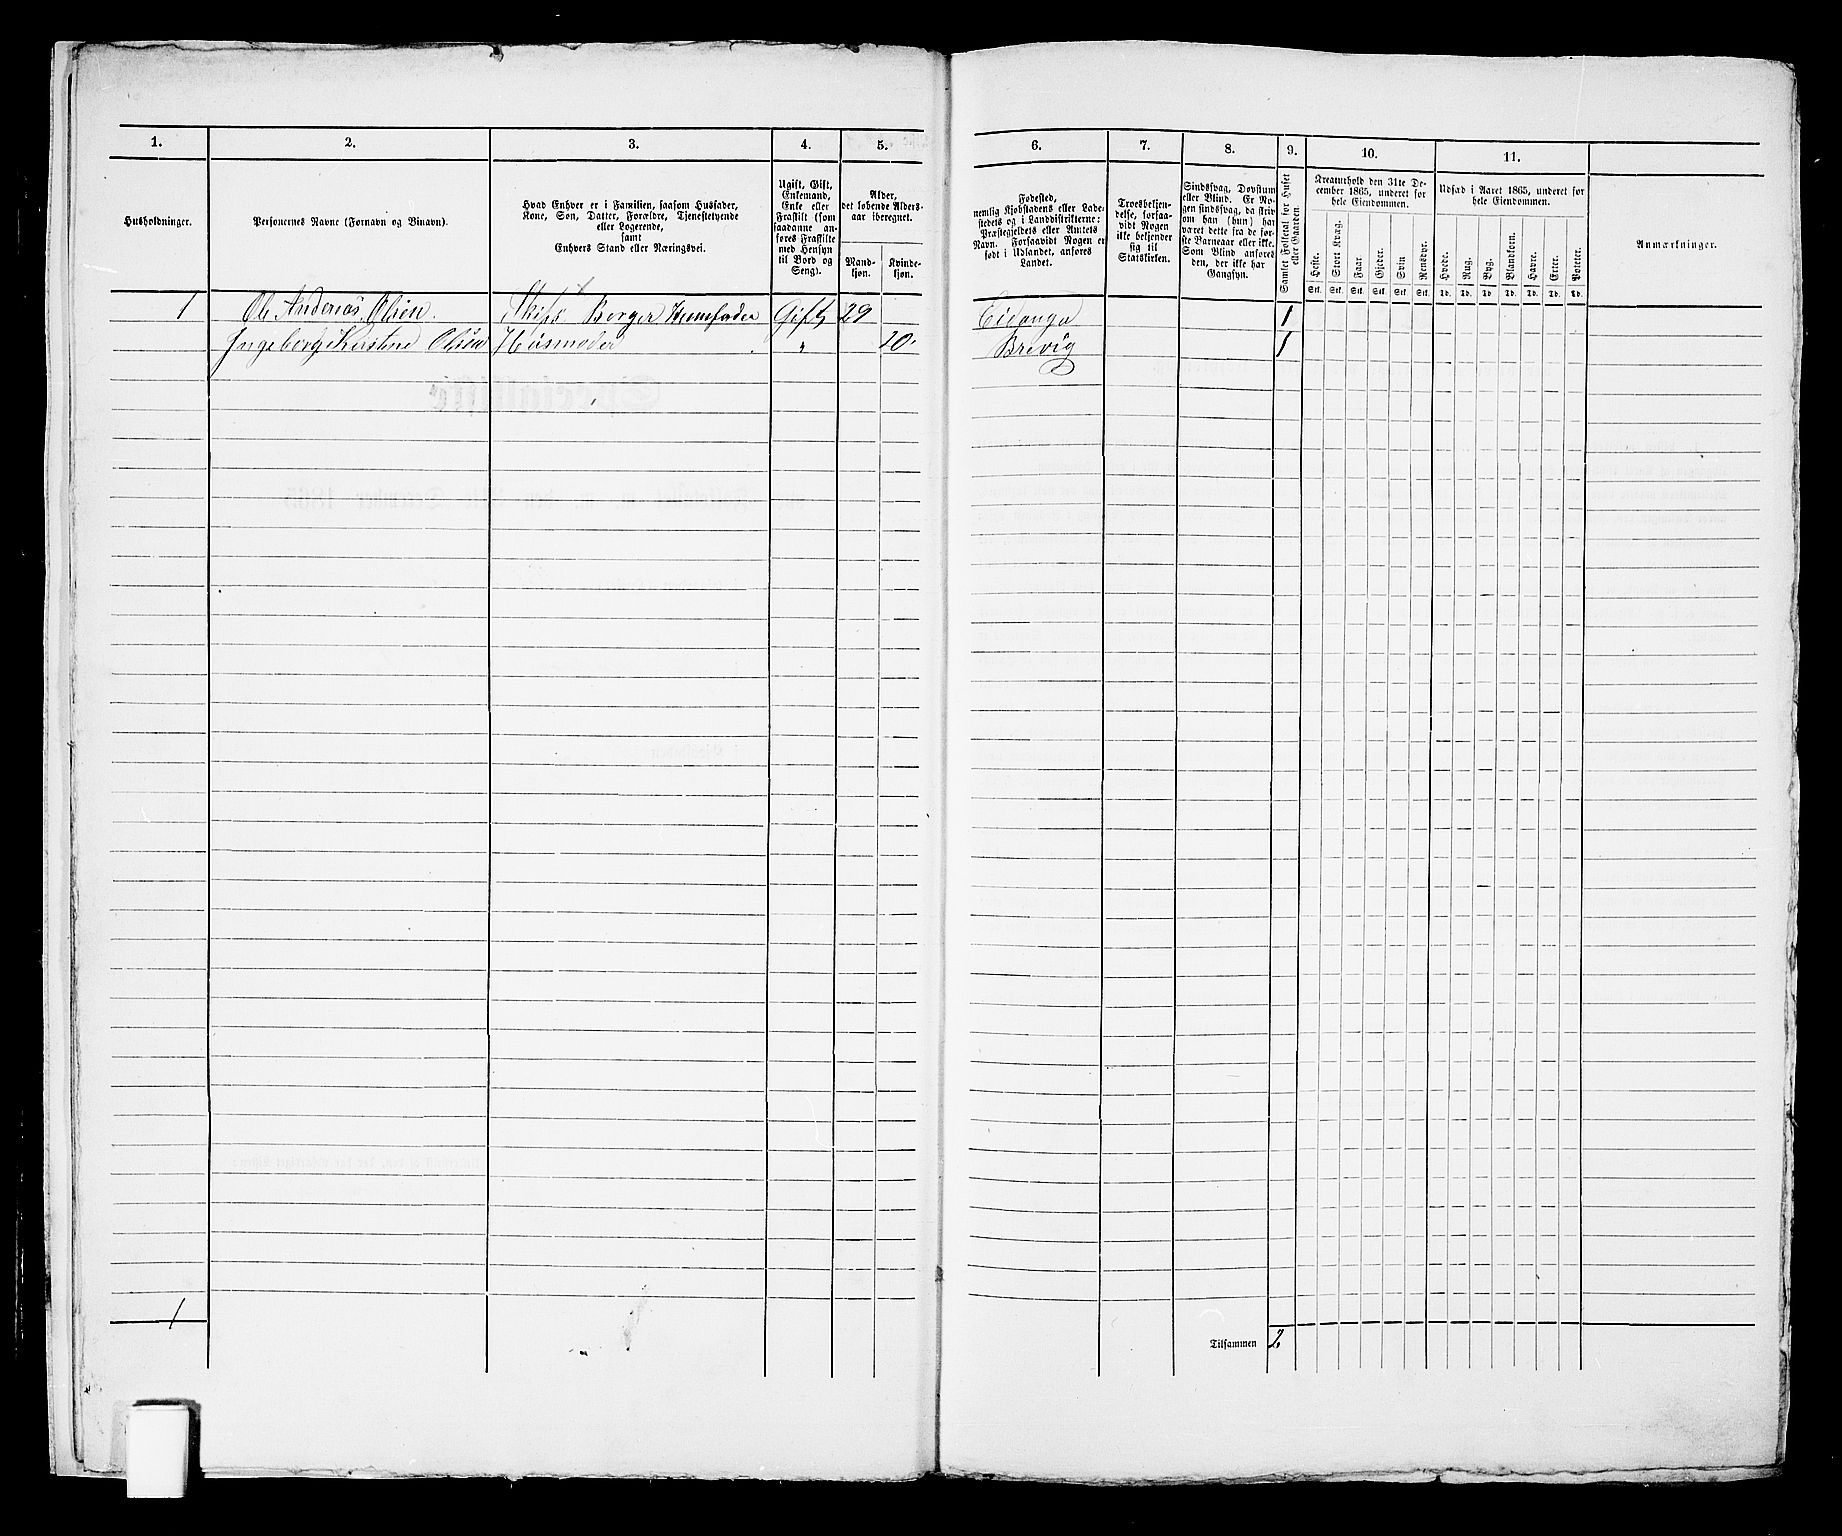 1. 2. 3. 4. 5. 6. 7. 8. 9. 10. 11.
Husholdninger.
Personernes Navne (Fornavn og Binavn).
Hvad Enhver er i Familien, saasom Husfader,
Kone, Søn, Datter, Forældre, Tjenestetyende
eller Logerende,
samt
Enhvers Stand eller Næringsvei.
Ugift, Gift,
Enkemand,
Enke eller
Fraskilt (som
saadanne an-
føres Fraskilte
med Hensyn
til Bord og
Seng).
Alder,
det løbende Alders-
aar iberegnet.
Mand-
kjøn.
Kvinde-
kjøn.
Fødested,
nemlig Kjøbstadens eller Lade-
stedets og i Landdistrikterne:
Præstegjeldets eller Amtets
Navn. Forsaavidt Nogen er
født i Udlandet, anføres
Landet.
Troesbekjen-
delse, forsaa-
vidt Nogen
ikke bekjender
sig til
Statskirken.
Sindssvag, Døvstum
eller Blind. Er No-
gen sindssvag, da skriv
om han (hun) har
været dette fra de før-
ste Barneaar eller ikke.
Som Blind anføres
den, der ikke har
Gangsyn.
Samlet Folketal for Huset
eller Gaarden
Kreaturhold den 31te De-
cember 1865, underet for
hele Eiendommen.
Heste. Stort Kvæg. Faar. Gjeder. Svin Rensdyr.
Stk. Stk. Stk. Stk. Stk. Stk.
Udsæd i Aaret 1865, underet for
hele Eiendommen.
Hvede. Rug. Byg. Blandkorn. Havre. Erter. Poteter.
Td. Td. Td. Td. Td. Td. Td.
Anmærkninger.
1 Ole Andreas Olsen. Skibs Borger Huusfader Gift 29 Eidanger 1
Ingeborg Kirstine Olsen Huusmoder " 20 Brevig 1
1
Tilsammen 2